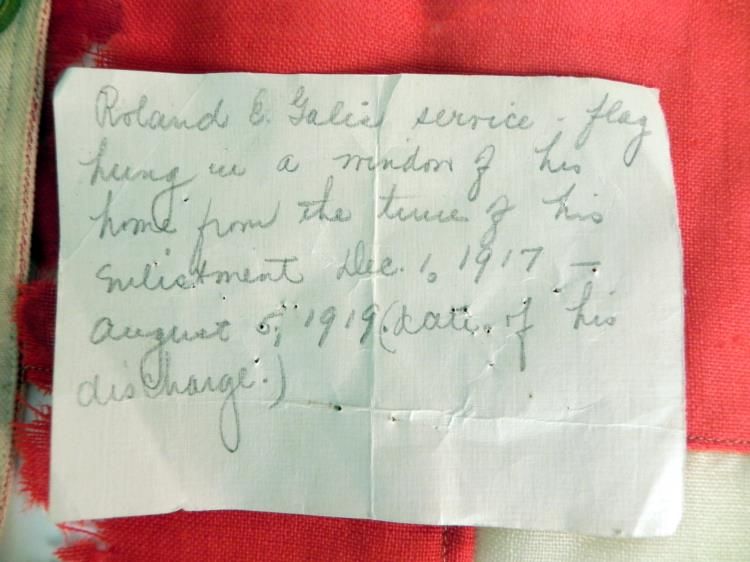 Roland E. Galie service - flag
hung in a window of his
home from the time of his
enlistment Dec. 1, 1917 —
August 5, 1919. (date of his
discharge.)